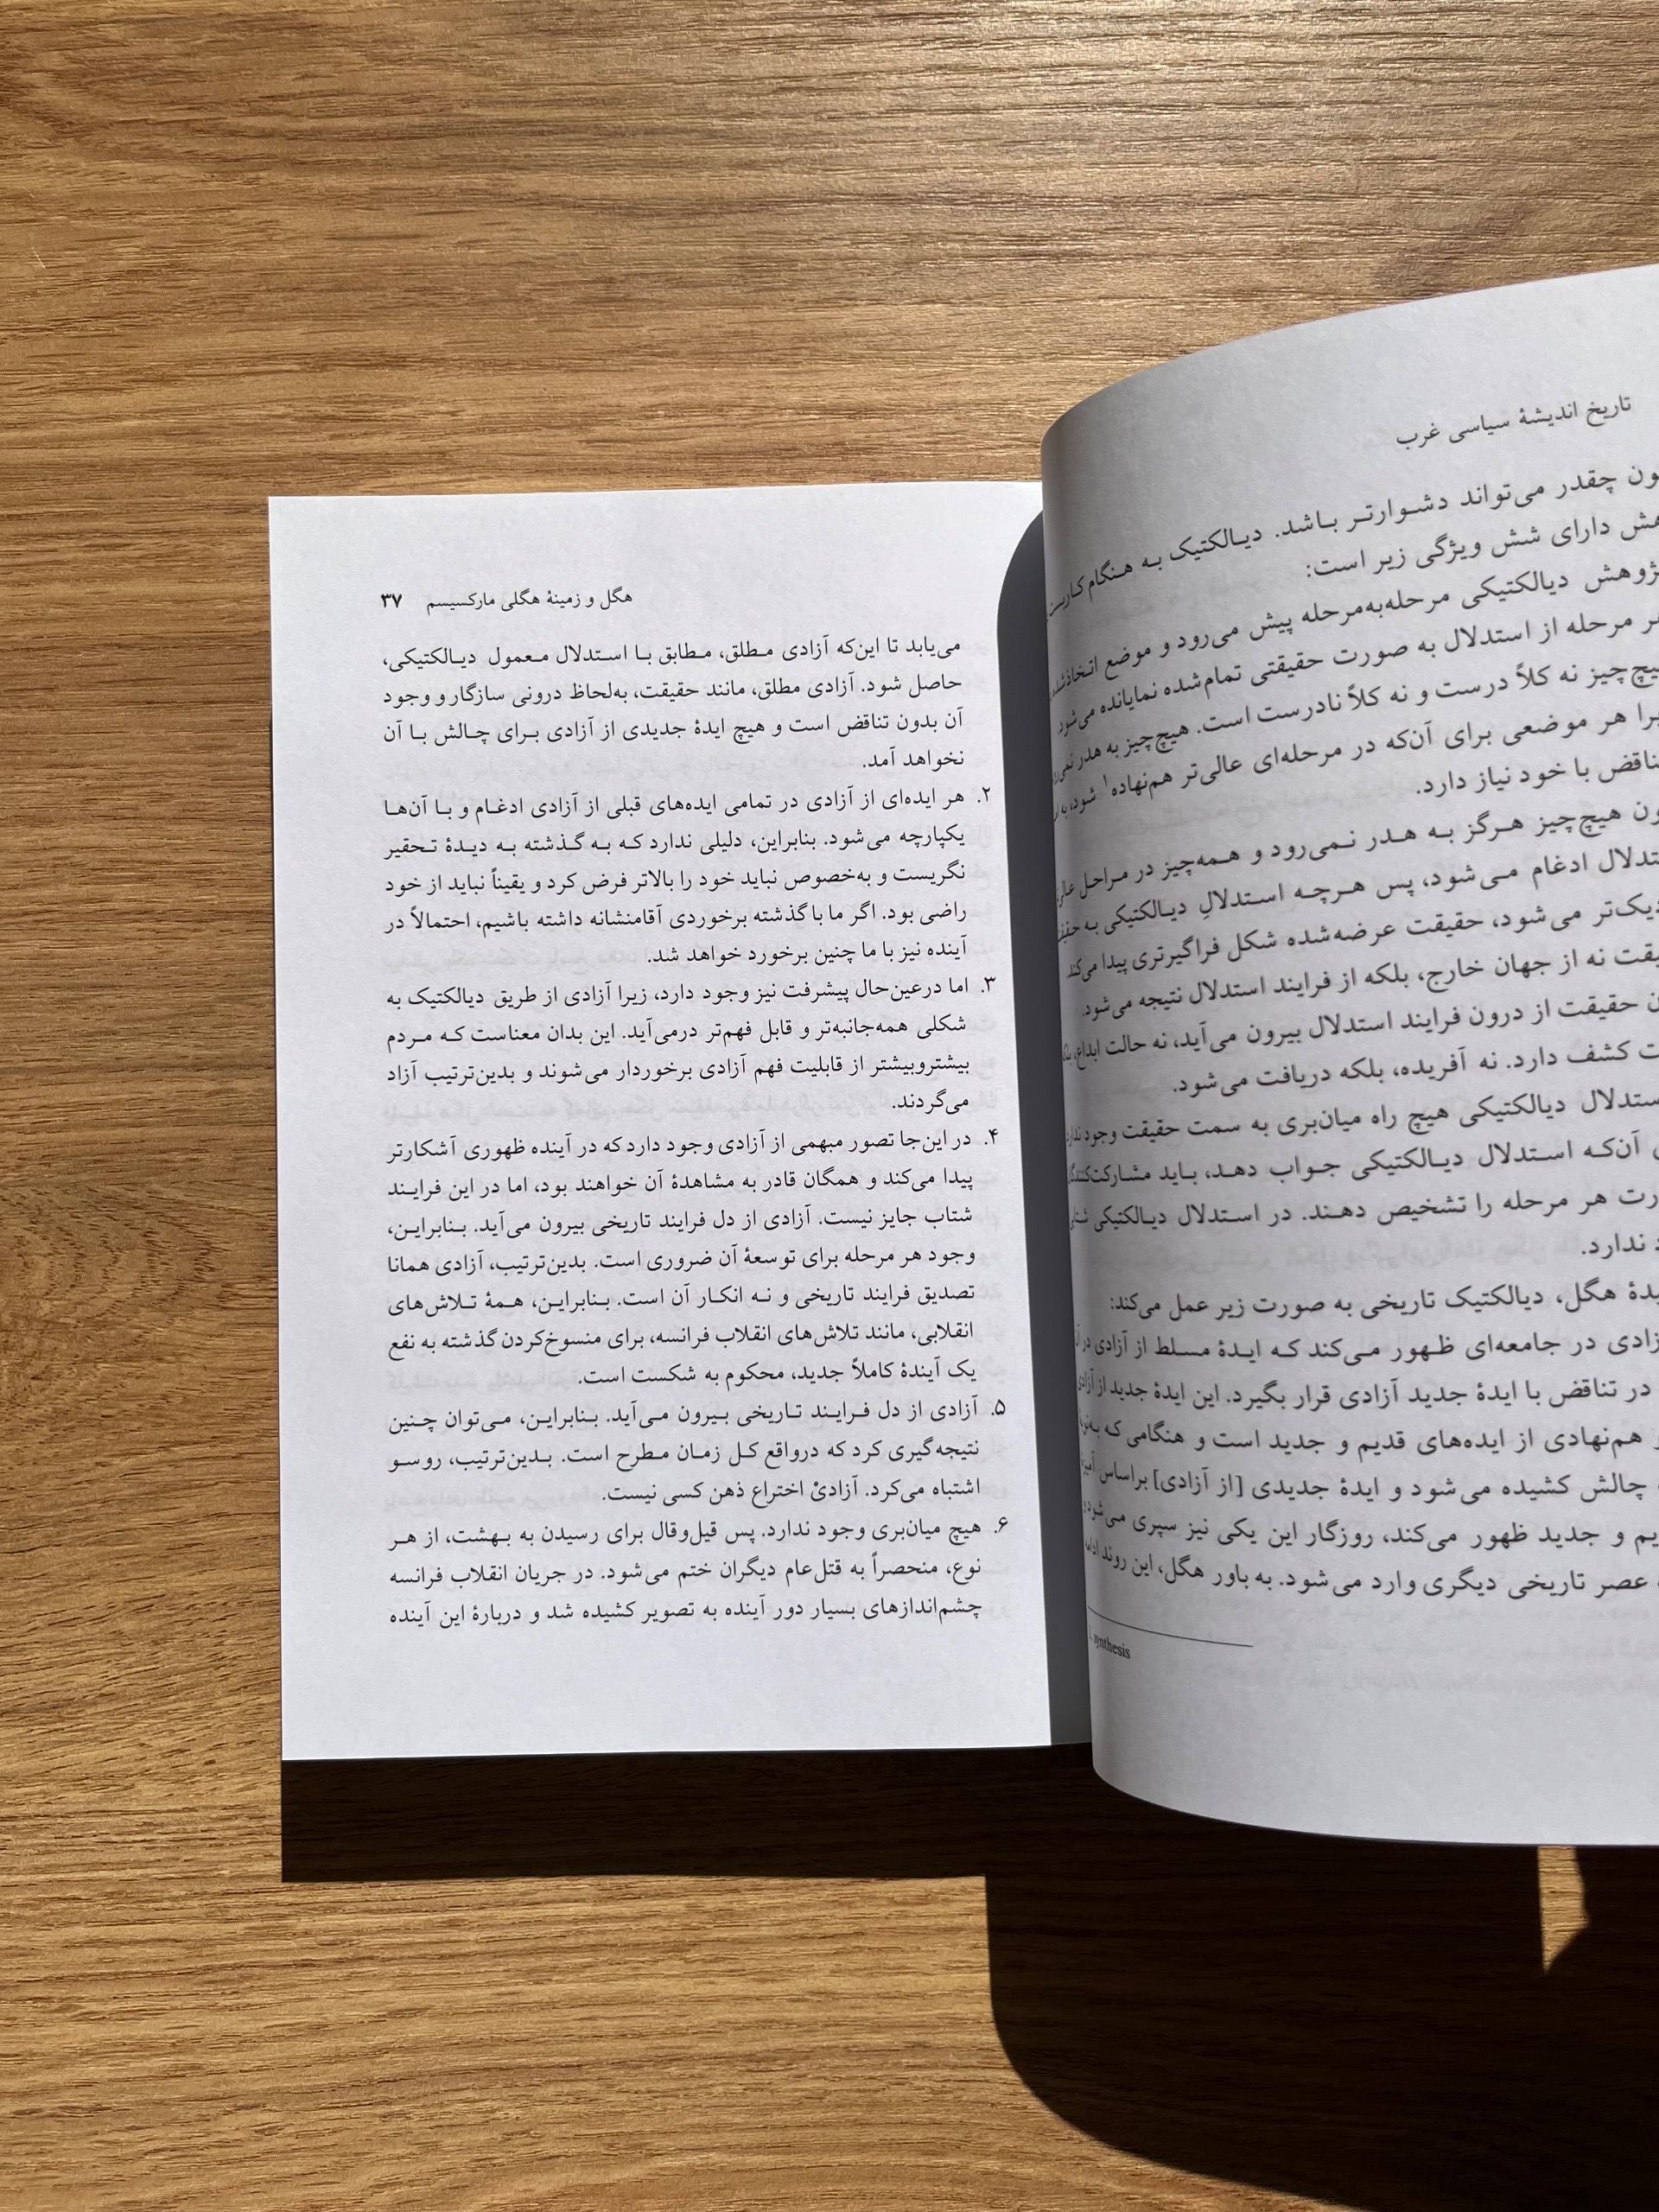 تاریخ اندیشهٔ سیاسی غرب
چقدر می‌تواند دشوارتر باشد. دیالکتیک به هنگام کاربست
دارای شش ویژگی زیر است:
دیالکتیکی مرحله‌به‌مرحله پیش می‌رود و موضع اتخاذشده
مرحله از استدلال به صورت حقیقتی تمام‌شده نمایانده می‌شود.
نه کلاً درست و نه کلاً نادرست است. هیچ‌چیز به هدر
هر موضعی برای آن‌که در مرحله‌ای عالی‌تر هم‌نهاده۱ شود، به
با خود نیاز دارد.
هیچ‌چیز هرگز به هدر نمی‌رود و همه‌چیز در مراحل
ادغام می‌شود، پس هرچه استدلالِ دیالکتیکی به
می‌شود، حقیقت عرضه‌شده شکل فراگیرتری پیدا می‌کند.
نه از جهان خارج، بلکه از فرایند استدلال نتیجه می‌شود.
حقیقت از درون فرایند استدلال بیرون می‌آید، نه حالت ابداع،
کشف دارد. نه آفریده، بلکه دریافت می‌شود.
دیالکتیکی هیچ راه میان‌بری به سمت حقیقت وجود
آن‌که استدلال دیالکتیکی جواب دهد، باید
هر مرحله را تشخیص دهند. در استدلال دیالکتیکی
ندارد.
هگل، دیالکتیک تاریخی به صورت زیر عمل می‌کند:
در جامعه‌ای ظهور می‌کند که ایدهٔ مسلط از آزادی در
در تناقض با ایدهٔ جدید آزادی قرار بگیرد. این ایدهٔ جدید از آزادی
هم‌نهادی از ایده‌های قدیم و جدید است و هنگامی که
چالش کشیده می‌شود و ایدهٔ جدیدی [از آزادی] براساس
و جدید ظهور می‌کند، روزگار این یکی نیز سپری می‌شود
عصر تاریخی دیگری وارد می‌شود. به باور هگل، این روند
synthesis
هگل و زمینهٔ هگلی مارکسیسم ۳۷
می‌یابد تا این‌که آزادی مطلق، مطابق با استدلال معمول دیالکتیکی،
حاصل شود. آزادی مطلق، مانند حقیقت، به‌لحاظ درونی سازگار و وجود
آن بدون تناقض است و هیچ ایدهٔ جدیدی از آزادی برای چالش با آن
نخواهد آمد.
۲. هر ایده‌ای از آزادی در تمامی ایده‌های قبلی از آزادی ادغام و با آن‌ها
یکپارچه می‌شود. بنابراین، دلیلی ندارد که به گذشته به دیدهٔ تحقیر
نگریست و به‌خصوص نباید خود را بالاتر فرض کرد و یقیناً نباید از خود
راضی بود. اگر ما با گذشته برخوردی آقامنشانه داشته باشیم، احتمالاً در
آینده نیز با ما چنین برخورد خواهد شد.
۳. اما درعین‌حال پیشرفت نیز وجود دارد، زیرا آزادی از طریق دیالکتیک به
شکلی همه‌جانبه‌تر و قابل فهم‌تر درمی‌آید. این بدان معناست که مردم
بیشتروبیشتر از قابلیت فهم آزادی برخوردار می‌شوند و بدین‌ترتیب آزاد
می‌گردند.
۴. در این‌جا تصور مبهمی از آزادی وجود دارد که در آینده ظهوری آشکارتر
پیدا می‌کند و همگان قادر به مشاهدهٔ آن خواهند بود، اما در این فرایند
شتاب جایز نیست. آزادی از دل فرایند تاریخی بیرون می‌آید. بنابراین،
وجود هر مرحله برای توسعهٔ آن ضروری است. بدین‌ترتیب، آزادی همانا
تصدیق فرایند تاریخی و نه انکار آن است. بنابراین، همهٔ تلاش‌های
انقلابی، مانند تلاش‌های انقلاب فرانسه، برای منسوخ‌کردن گذشته به نفع
یک آیندهٔ کاملاً جدید، محکوم به شکست است.
۵. آزادی از دل فرایند تاریخی بیرون می‌آید. بنابراین، می‌توان چنین
نتیجه‌گیری کرد که درواقع کل زمان مطرح است. بدین‌ترتیب، روسو
اشتباه می‌کرد. آزادیْ اختراع ذهن کسی نیست.
۶. هیچ میان‌بری وجود ندارد. پس قیل‌وقال برای رسیدن به بهشت، از هر
نوع، منحصراً به قتل‌عام دیگران ختم می‌شود. در جریان انقلاب فرانسه
چشم‌اندازهای بسیار دور آینده به تصویر کشیده شد و دربارهٔ این آینده